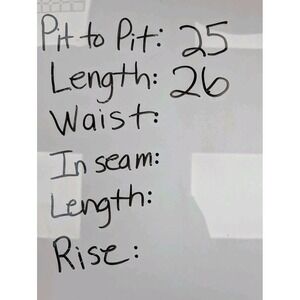 Pit to Pit: 25
Length: 26
Waist:
Inseam:
Length:
Rise: